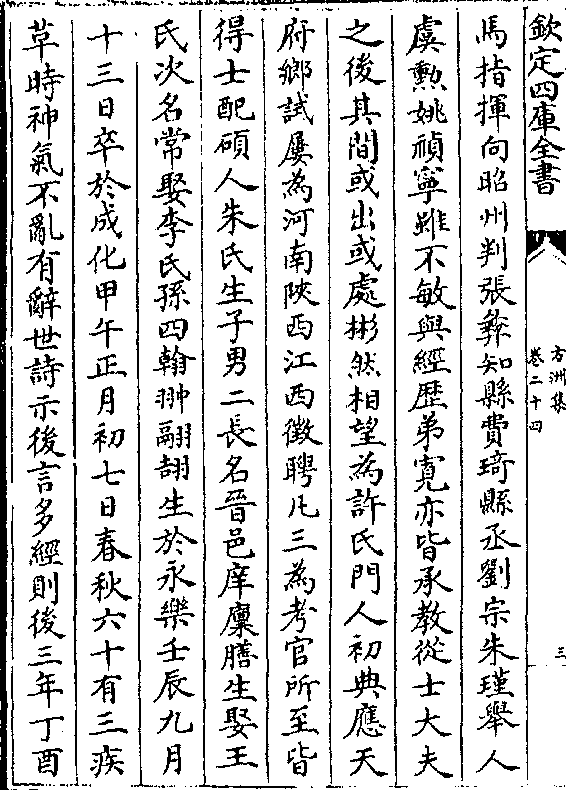 欽定四庫全書
方洲集
卷二十四
三
馬指揮向昭州判張彝知縣費琦縣丞劉宗朱瑾舉人
虞勲姚禎寧雖不敏與經歴弟寛亦皆承教從士大夫
之後其間或出或處彬然相望為許氏門人初典應天
府鄉試屢為河南陜西江西徵聘凡三為考官所至皆
得士配碩人朱氏生子男二長名晉邑庠廩膳生娶王
氏次名常娶李氏孫四翰翀翮翓生於永樂壬辰九月
十三日卒於成化甲午正月初七日春秋六十有三疾
草時神氣不亂有辭世詩示後言多經則後三年丁酉